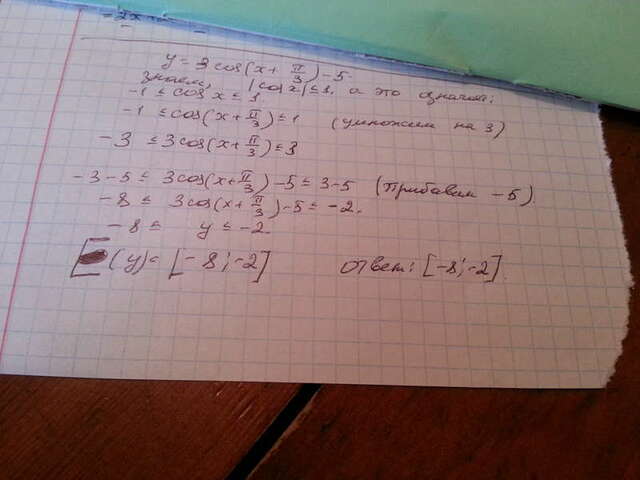 = 2x
y = 3 cos(x + π/3) - 5
знаем, |cos x| ≤ 1, а это означает:
-1 ≤ cos x ≤ 1
-1 ≤ cos(x + π/3) ≤ 1 (умножим на 3)
-3 ≤ 3cos(x + π/3) ≤ 3
-3-5 ≤ 3cos(x + π/3) - 5 ≤ 3-5 (Прибавим -5)
-8 ≤ 3cos(x + π/3) - 5 ≤ -2.
-8 ≤ y ≤ -2
E(y) = [-8; -2] Ответ: [-8; -2].